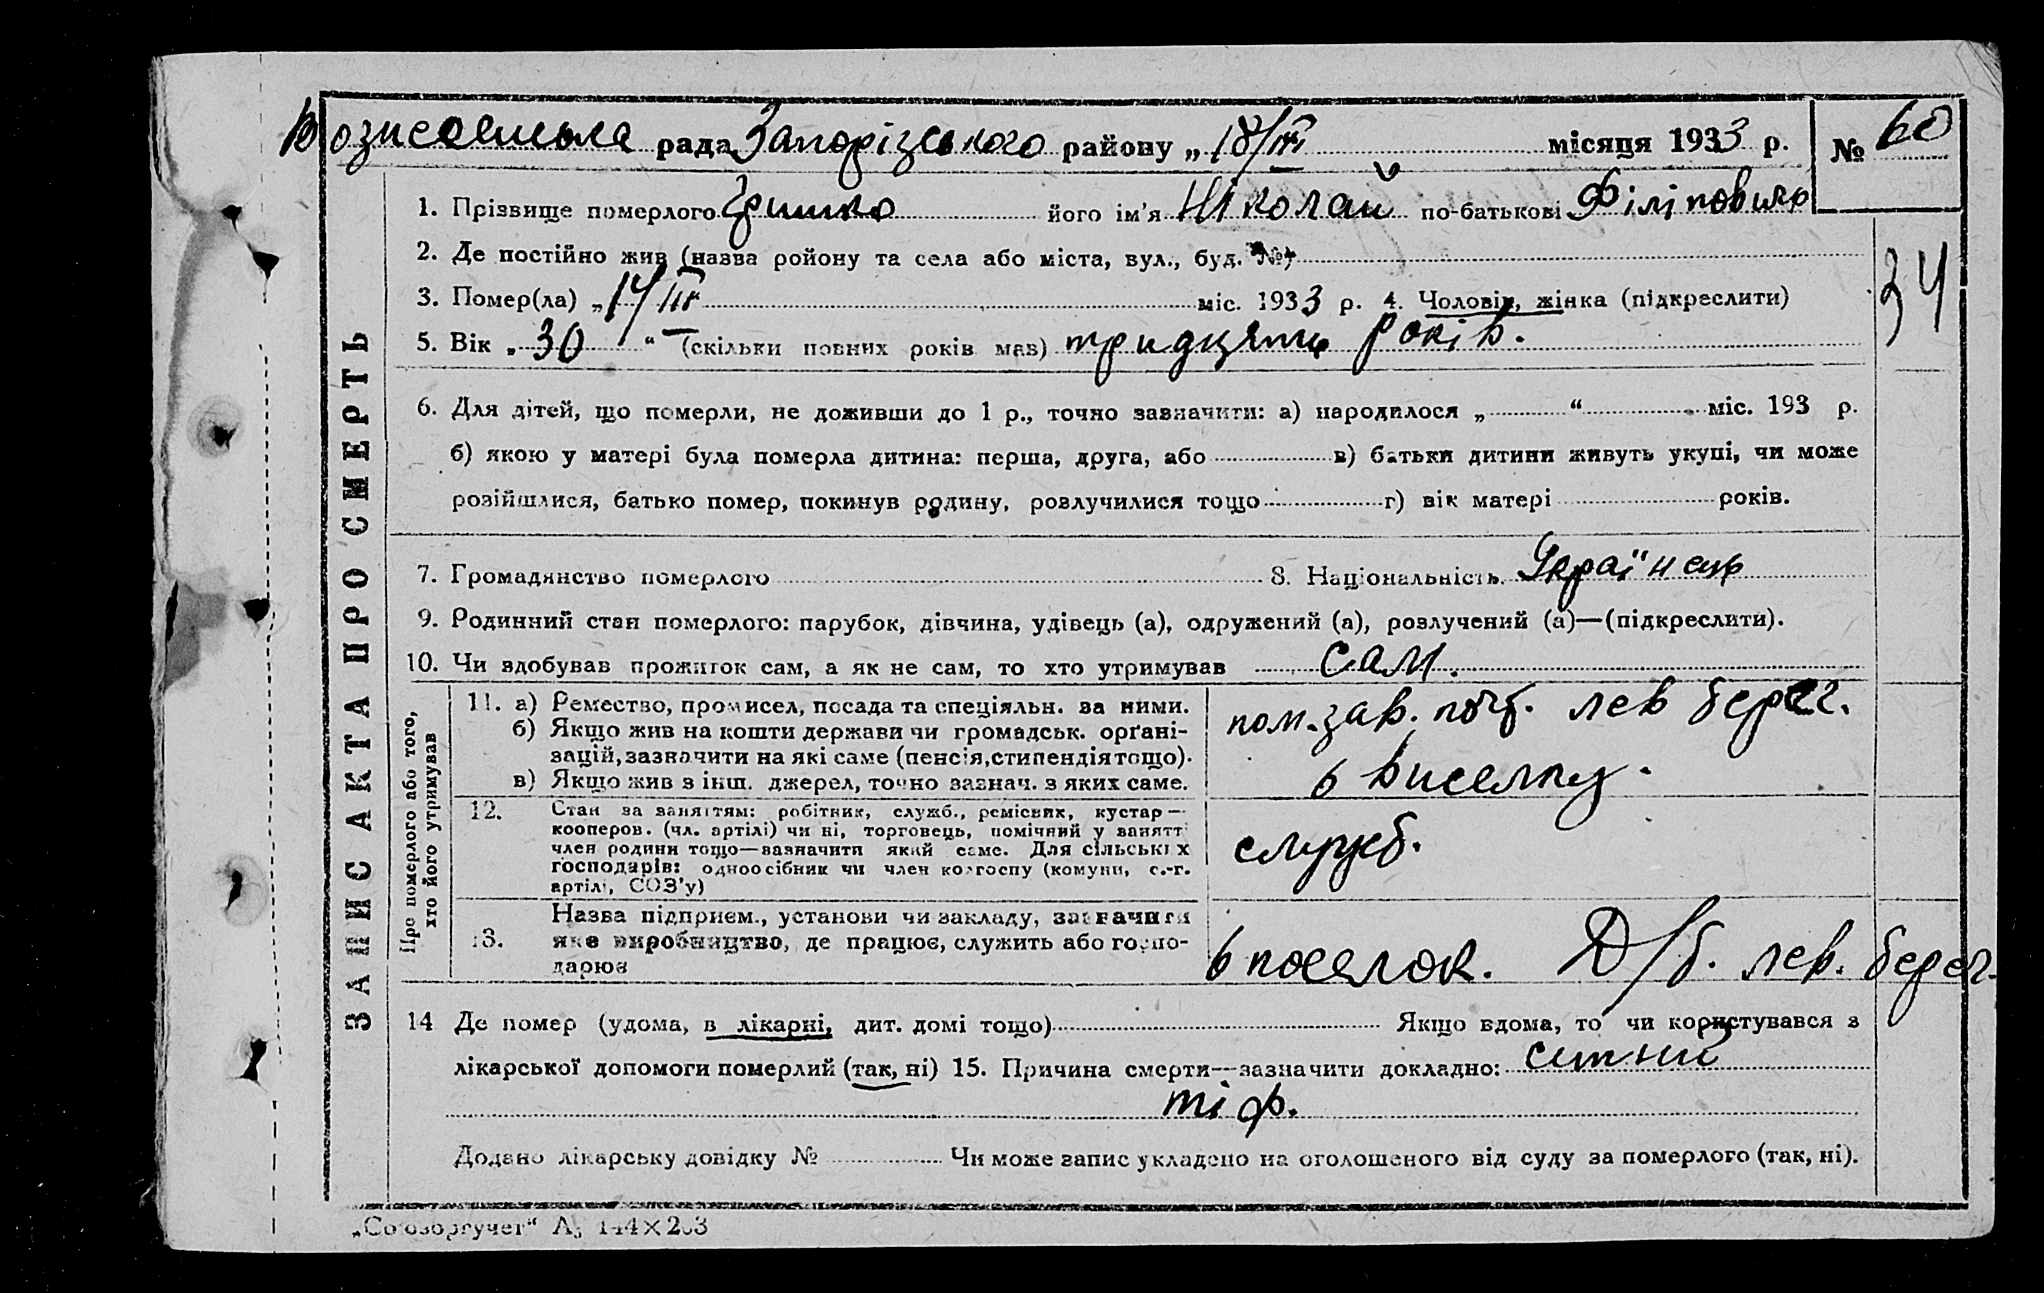 Вознесенська рада Запорізського району „ 18/III місяця 1933 р. № 60
1. Прізвище померлого Гришко його ім’я Ніколай по-батькові Філіповичь
2. Де постійно жив (назва ройону та села або міста, вул., буд. №)
3. Помер(ла) „ 14/III міс. 1933 р. 4. Чоловік, жінка (підкреслити)
34
5. Вік „ 30 “ (скільки повних років мав) тридцять років.
6. Для дітей, що померли, не доживши до 1 р., точно зазначити: а) народилося „ “ міс. 193 р.
б) якою у матері була померла дитина: перша, друга, або в) батьки дитини живуть укупі, чи може
розійшлися, батько помер, покинув родину, розлучилися тощо г) вік матері років.
7. Громадянство померлого 8. Національність Українець
9. Родинний стан померлого: парубок, дівчина, удівець (а), одружений (а), розлучений (а)—(підкреслити).
10. Чи здобував прожиток сам, а як не сам, то хто утримував сам.
ЗАПИС АКТА ПРО СМЕРТЬ
Про померлого або того,
хто його утримував
11. а) Ремество, промисел, посада та спеціяльн. за ними.
б) Якщо жив на кошти держави чи громадськ. орґані-
зацій, зазначити на які саме (пенсія, стипендія тощо).
в) Якщо жив з інш. джерел, точно зазнач. з яких саме.
пом. зав. поб. лев берег.
6 виселку.
12. Стан за заняттям: робітник, служб., ремісник, кустар—
кооперов. (чл. артілі) чи ні, торговець, помічний у занятт
член родини тощо—зазначити який саме. Для сільських
господарів: одноосібник чи член колгоспу (комуни, с.-г.
артілі, СОЗ’у)
служб.
13. Назва підприєм., установи чи закладу, зазначити
яке виробництво, де працює, служить або госпо-
дарює
6 поселок. Д/б. лев. берег.
14 Де помер (удома, в лікарні, дит. домі тощо) Якщо вдома, то чи користувався з
лікарської допомоги померлий (так, ні) 15. Причина смерти—зазначити докладно: ситний
тіф.
Додано лікарську довідку № Чи може запис укладено на оголошеного від суду за померлого (так, ні).
„Союзоргучет“ А5 144×203